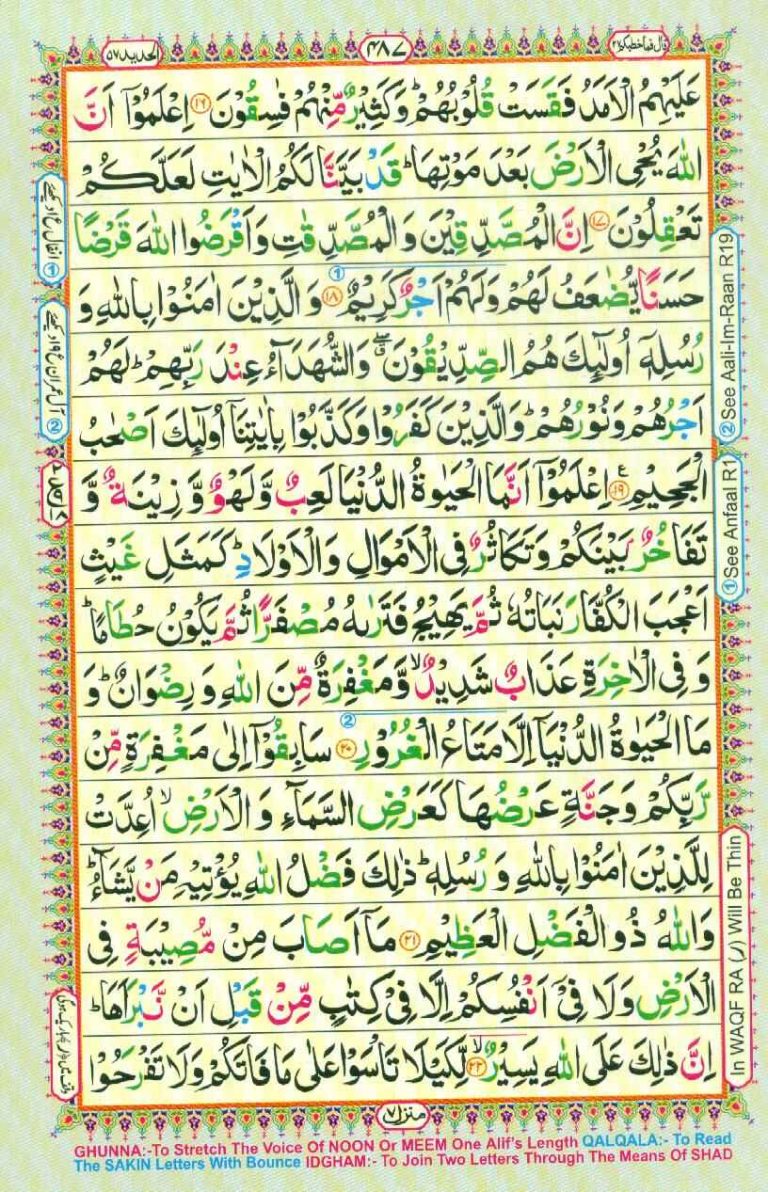 الحدید ۵۷
۴۸۷
قال فما خطبکم ۲۷
عَلَيْهِمُ الْاَمَدُ فَقَسَتْ قُلُوْبُهُمْ ؕ وَكَثِيْرٌ مِّنْهُمْ فٰسِقُوْنَ ۝۱۶ اِعْلَمُوْۤا اَنَّ
اللّٰهَ يُحْيِ الْاَرْضَ بَعْدَ مَوْتِهَا ؕ قَدْ بَيَّنَّا لَكُمُ الْاٰيٰتِ لَعَلَّكُمْ
تَعْقِلُوْنَ ۝۱۷ اِنَّ الْمُصَّدِّقِيْنَ وَالْمُصَّدِّقٰتِ وَاَقْرَضُوا اللّٰهَ قَرْضًا
حَسَنًا يُّضٰعَفُ لَهُمْ وَلَهُمْ اَجْرٌ كَرِيْمٌ ۝۱۸ وَالَّذِيْنَ اٰمَنُوْا بِاللّٰهِ وَ
رُسُلِهٖۤ اُولٰٓئِكَ هُمُ الصِّدِّيْقُوْنَ ۖۗ وَالشُّهَدَآءُ عِنْدَ رَبِّهِمْ ؕ لَهُمْ
اَجْرُهُمْ وَنُوْرُهُمْ ؕ وَالَّذِيْنَ كَفَرُوْا وَكَذَّبُوْا بِاٰيٰتِنَاۤ اُولٰٓئِكَ اَصْحٰبُ
الْجَحِيْمِ ۝۱۹ اِعْلَمُوْۤا اَنَّمَا الْحَيٰوةُ الدُّنْيَا لَعِبٌ وَّلَهْوٌ وَّ زِيْنَةٌ وَّ
تَفَاخُرٌۢ بَيْنَكُمْ وَتَكَاثُرٌ فِي الْاَمْوَالِ وَالْاَوْلَادِ ؕ كَمَثَلِ غَيْثٍ
اَعْجَبَ الْكُفَّارَ نَبَاتُهٗ ثُمَّ يَهِيْجُ فَتَرٰىهُ مُصْفَرًّا ثُمَّ يَكُوْنُ حُطَامًا ؕ
وَ فِي الْاٰخِرَةِ عَذَابٌ شَدِيْدٌ ۙ وَّمَغْفِرَةٌ مِّنَ اللّٰهِ وَرِضْوَانٌ ؕ وَ
مَا الْحَيٰوةُ الدُّنْيَاۤ اِلَّا مَتَاعُ الْغُرُوْرِ ۝۲۰ سَابِقُوْۤا اِلٰى مَغْفِرَةٍ مِّنْ
رَّبِّكُمْ وَجَنَّةٍ عَرْضُهَا كَعَرْضِ السَّمَآءِ وَالْاَرْضِ ۙ اُعِدَّتْ
لِلَّذِيْنَ اٰمَنُوْا بِاللّٰهِ وَ رُسُلِهٖ ؕ ذٰلِكَ فَضْلُ اللّٰهِ يُؤْتِيْهِ مَنْ يَّشَآءُ ؕ
وَاللّٰهُ ذُو الْفَضْلِ الْعَظِيْمِ ۝۲۱ مَاۤ اَصَابَ مِنْ مُّصِيْبَةٍ فِي
الْاَرْضِ وَلَا فِيْۤ اَنْفُسِكُمْ اِلَّا فِيْ كِتٰبٍ مِّنْ قَبْلِ اَنْ نَّبْرَاَهَا ؕ
اِنَّ ذٰلِكَ عَلَى اللّٰهِ يَسِيْرٌ ۝۲۲ ۙ لِّكَيْلَا تَاْسَوْا عَلٰى مَا فَاتَكُمْ وَلَا تَفْرَحُوْا
① انفال ع ۱ دیکھئے
② آل عمران ع ۱۹ دیکھئے
② See Aali-Im-Raan R19
① See Anfaal R1
In WAQF RA (ر) Will Be Thin
منزل ۷
GHUNNA:-To Stretch The Voice Of NOON Or MEEM One Alif's Length QALQALA:- To Read
The SAKIN Letters With Bounce IDGHAM:- To Join Two Letters Through The Means Of SHAD